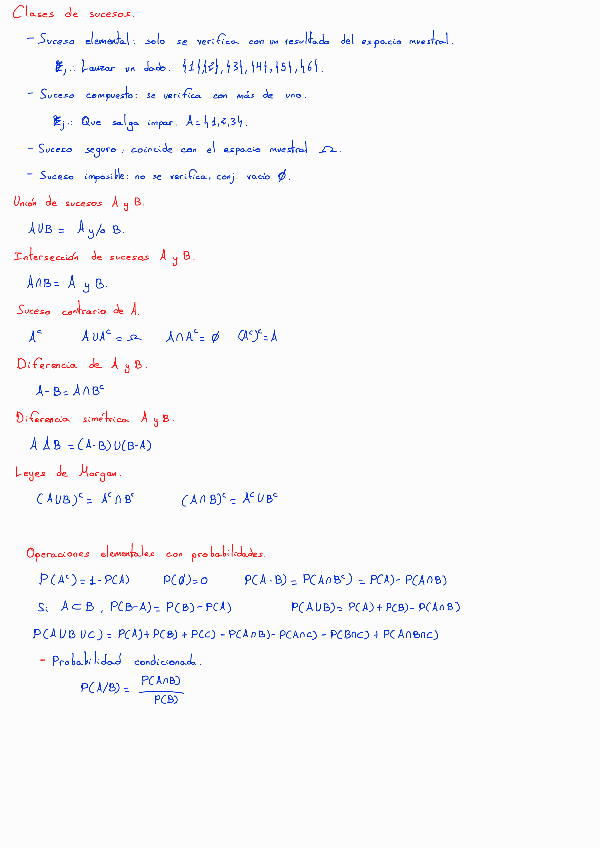 Clases de sucesos.
- Suceso elemental: solo se verifica con un resultado del espacio muestral.
Ej.: Lanzar un dado. {1}{2}, {3}, {4}, {5}, {6}.
- Suceso compuesto: se verifica con más de uno.
Ej.: Que salga impar. A={1,2,3}.
- Suceso seguro: coincide con el espacio muestral Ω.
- Suceso imposible: no se verifica, conj. vacío ∅.
Unión de sucesos A y B.
A∪B = A y/o B.
Intersección de sucesos A y B.
A∩B = A y B.
Suceso contrario de A.
Aᶜ A∪Aᶜ = Ω A∩Aᶜ = ∅ (Aᶜ)ᶜ = A
Diferencia de A y B.
A-B = A∩Bᶜ
Diferencia simétrica A y B.
A Δ B = (A-B)∪(B-A)
Leyes de Morgan.
(A∪B)ᶜ = Aᶜ∩Bᶜ (A∩B)ᶜ = Aᶜ∪Bᶜ
Operaciones elementales con probabilidades.
P(Aᶜ) = 1-P(A) P(∅)=0 P(A-B) = P(A∩Bᶜ) = P(A)-P(A∩B)
Si A⊂B, P(B-A) = P(B)-P(A) P(A∪B) = P(A)+P(B)-P(A∩B)
P(A∪B∪C) = P(A)+P(B)+P(C)-P(A∩B)-P(A∩C)-P(B∩C)+P(A∩B∩C)
- Probabilidad condicionada.
P(A/B) = P(A∩B)
P(B)